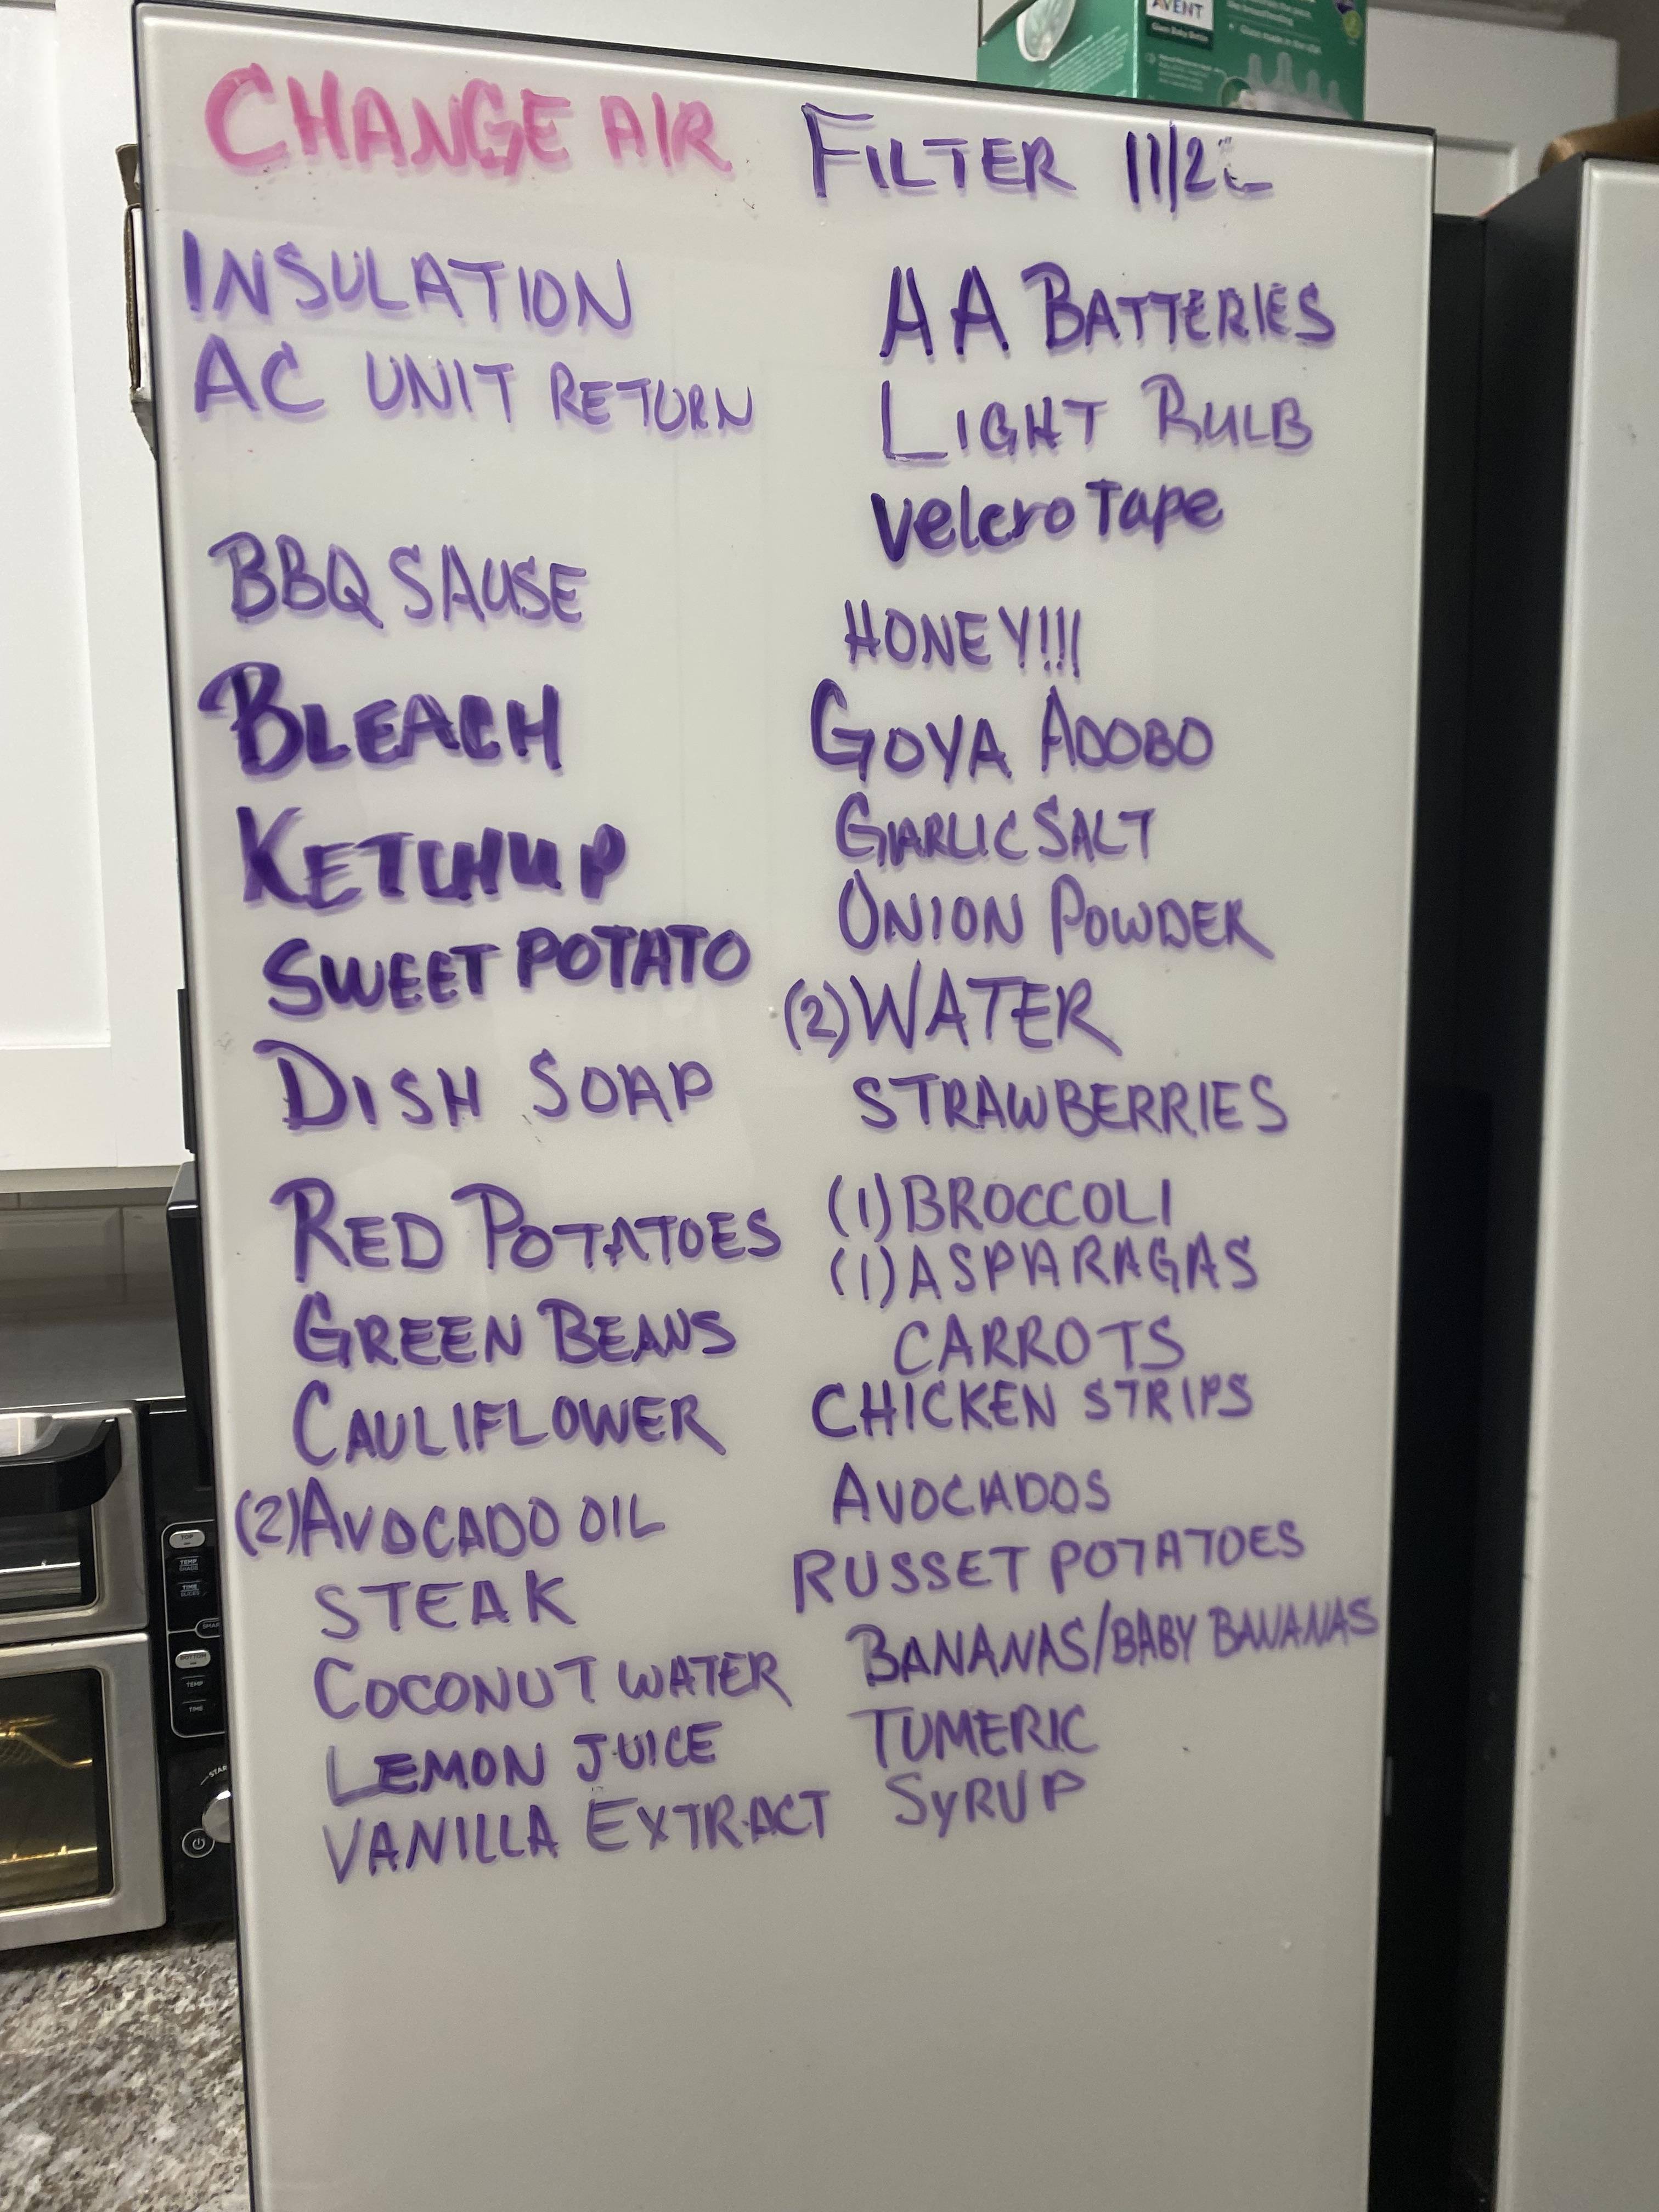 CHANGE AIR FILTER 11/22
INSULATION
AC UNIT RETURN
BBQ SAUSE
BLEACH
KETCHUP
SWEET POTATO
DISH SOAP
RED POTATOES
GREEN BEANS
CAULIFLOWER
(2) AVOCADO OIL
STEAK
COCONUT WATER
LEMON JUICE
VANILLA EXTRACT
AA BATTERIES
LIGHT BULB
Velcro Tape
HONEY!!!
GOYA ADOBO
GARLIC SALT
ONION POWDER
(2) WATER
STRAWBERRIES
(1) BROCCOLI
(1) ASPARAGAS
CARROTS
CHICKEN STRIPS
AVOCADOS
RUSSET POTATOES
BANANAS/BABY BANANAS
TUMERIC
SYRUP
AVENT
Glass Baby Bottle
Glass made in the USA
TOP
TEMP
TIME
BOTTOM
TEMP
TIME